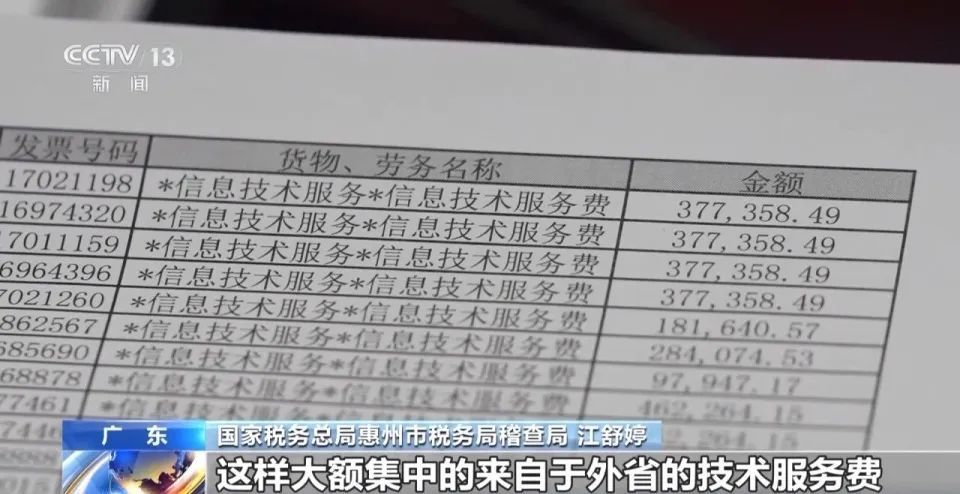 CCTV 13
新闻
发票号码 货物、劳务名称 金额
17021198 *信息技术服务*信息技术服务费 377,358.49
16974320 *信息技术服务*信息技术服务费 377,358.49
17011159 *信息技术服务*信息技术服务费 377,358.49
6964396 *信息技术服务*信息技术服务费 377,358.49
7021260 *信息技术服务*信息技术服务费 181,640.57
862567 *信息技术服务*信息技术服务费 284,074.53
685690 *信息技术服务*信息技术服务费 97,947.17
68878 *信息技术服务*信息技术服务费 462,264.15
77461 *信息技术服务*信息技术服务费
广东 国家税务总局惠州市税务局稽查局 江舒婷
这样大额集中的来自于外省的技术服务费